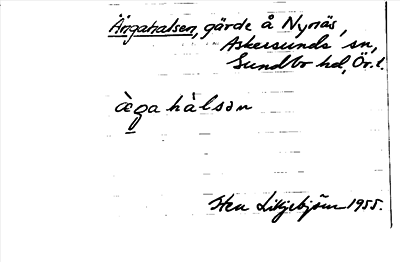 Ängahalsen, gärde å Nynäs,
Askersunds sn,
Sundbo hd, Ör. l.
æ̀ga hàlsən
Sten Liljebjörn 1955.